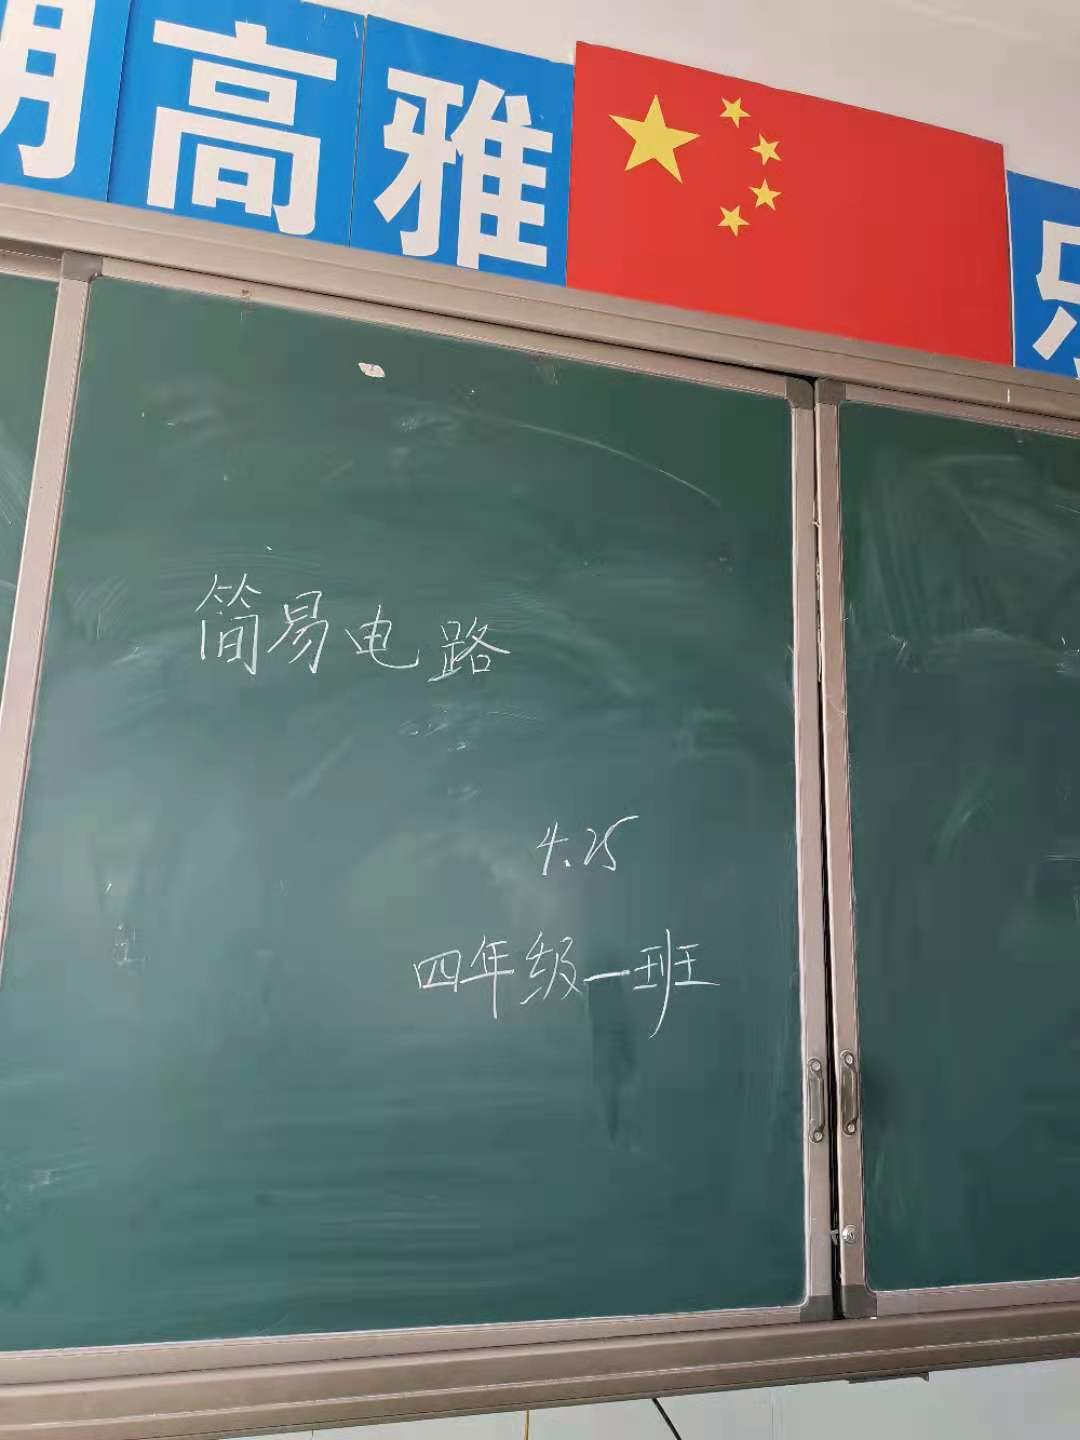 高雅
简易电路
4.25
四年级一班